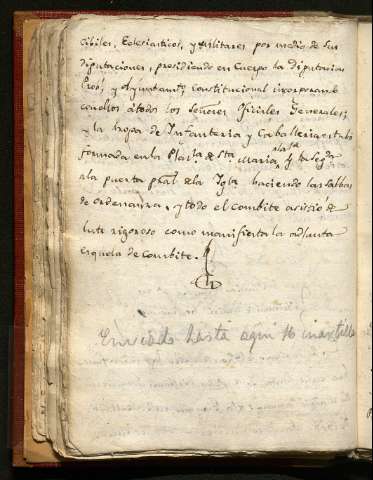 cibiles, Eclesiasticos, y Militares por medio de sus
diputaciones, presidiendo en Cuerpo la Diputacion
Prov.l y Ayuntam.to Constitucional incorporan.se
con ellos atodos los Señores Oficiales Generales;
y la tropa de Infanteria y Caballeria estubo
formada en la Plaz.la de Sta Maria, y la segda
ala puerta pral dela Igla haciendo las salbas
de ordenanza, y todo el combite asistió de
luto rigoroso como manifiesta la adjunta
esquela de combite.
Enviado hasta aqui